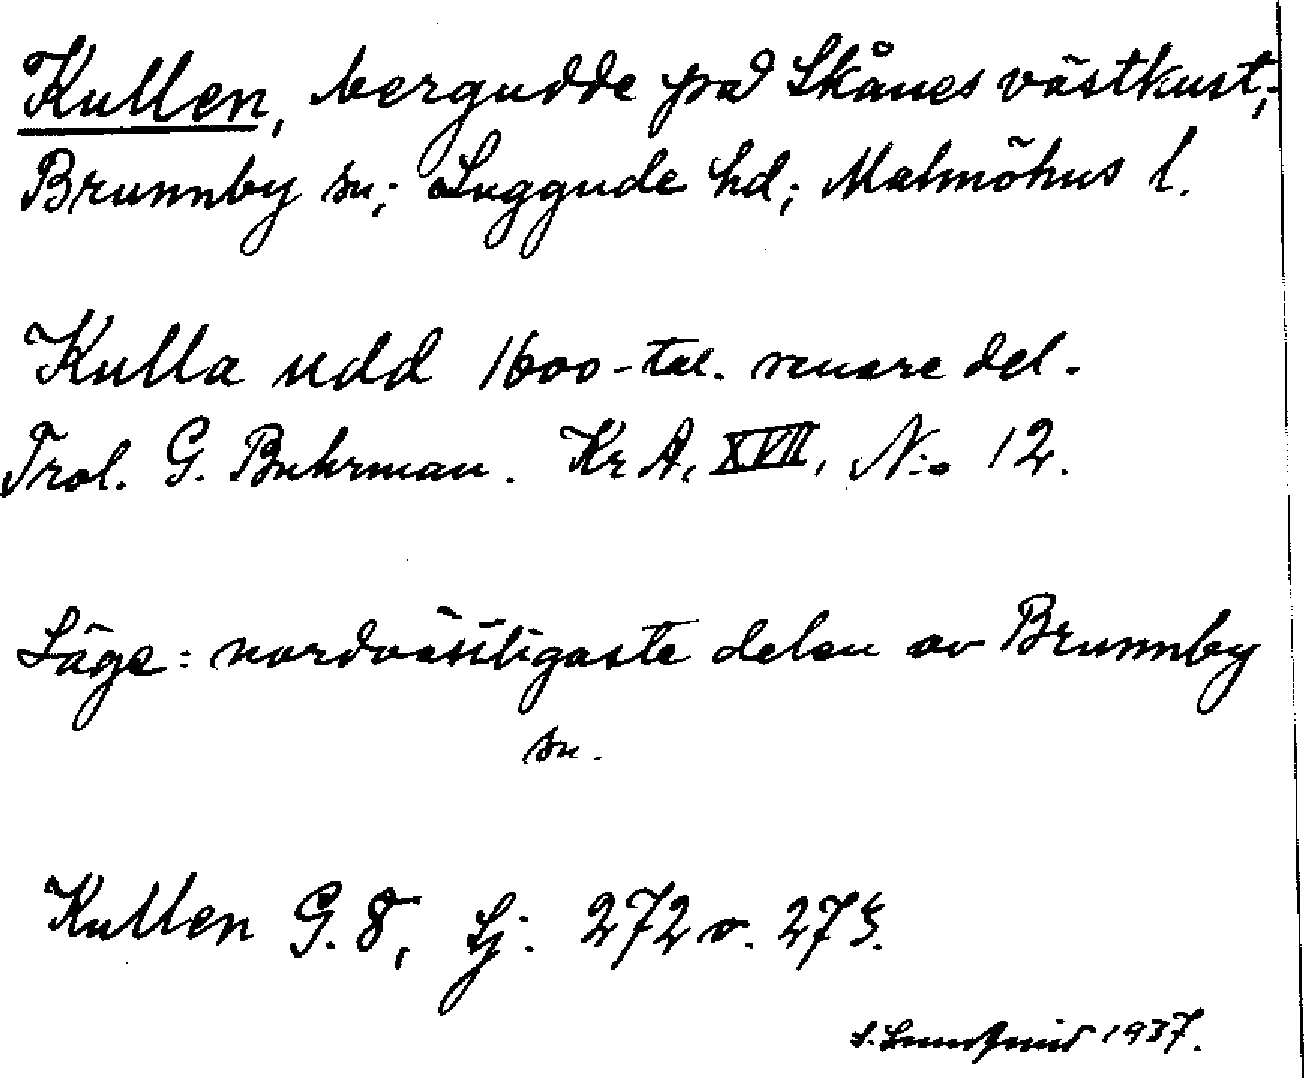 Kullen, bergudde på Skånes västkust,
Brunnby sn; Luggude hd; Malmöhus l.
Kulla udd 1600-tal. senare del.
Trol. G. Buhrman. Kr A, XVII, N:o 12.
Läge: nordvästligaste delen av Brunnby
sn.
Kullen G. 8, Lj: 272 o. 275.
1937.